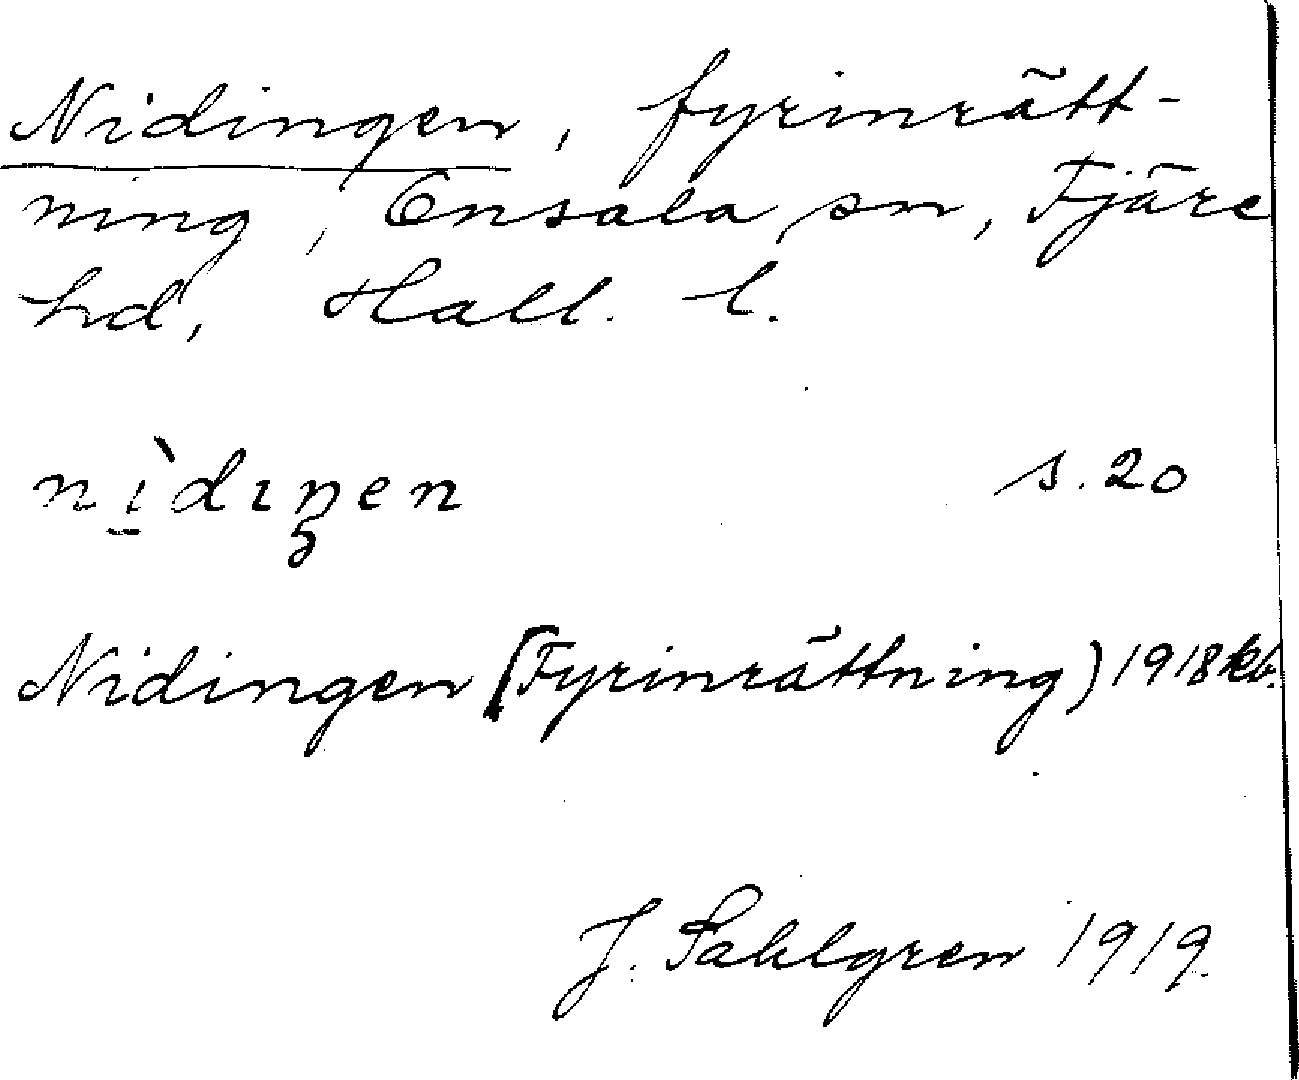 Nidingen, fyrinrätt-
ning, Onsala sn, Fjäre
hd, Hall. l.
nı̲̀dıŋen s. 20
Nidingen (Fyrinrättning) 1918 kb.
J. Sahlgren 1919.